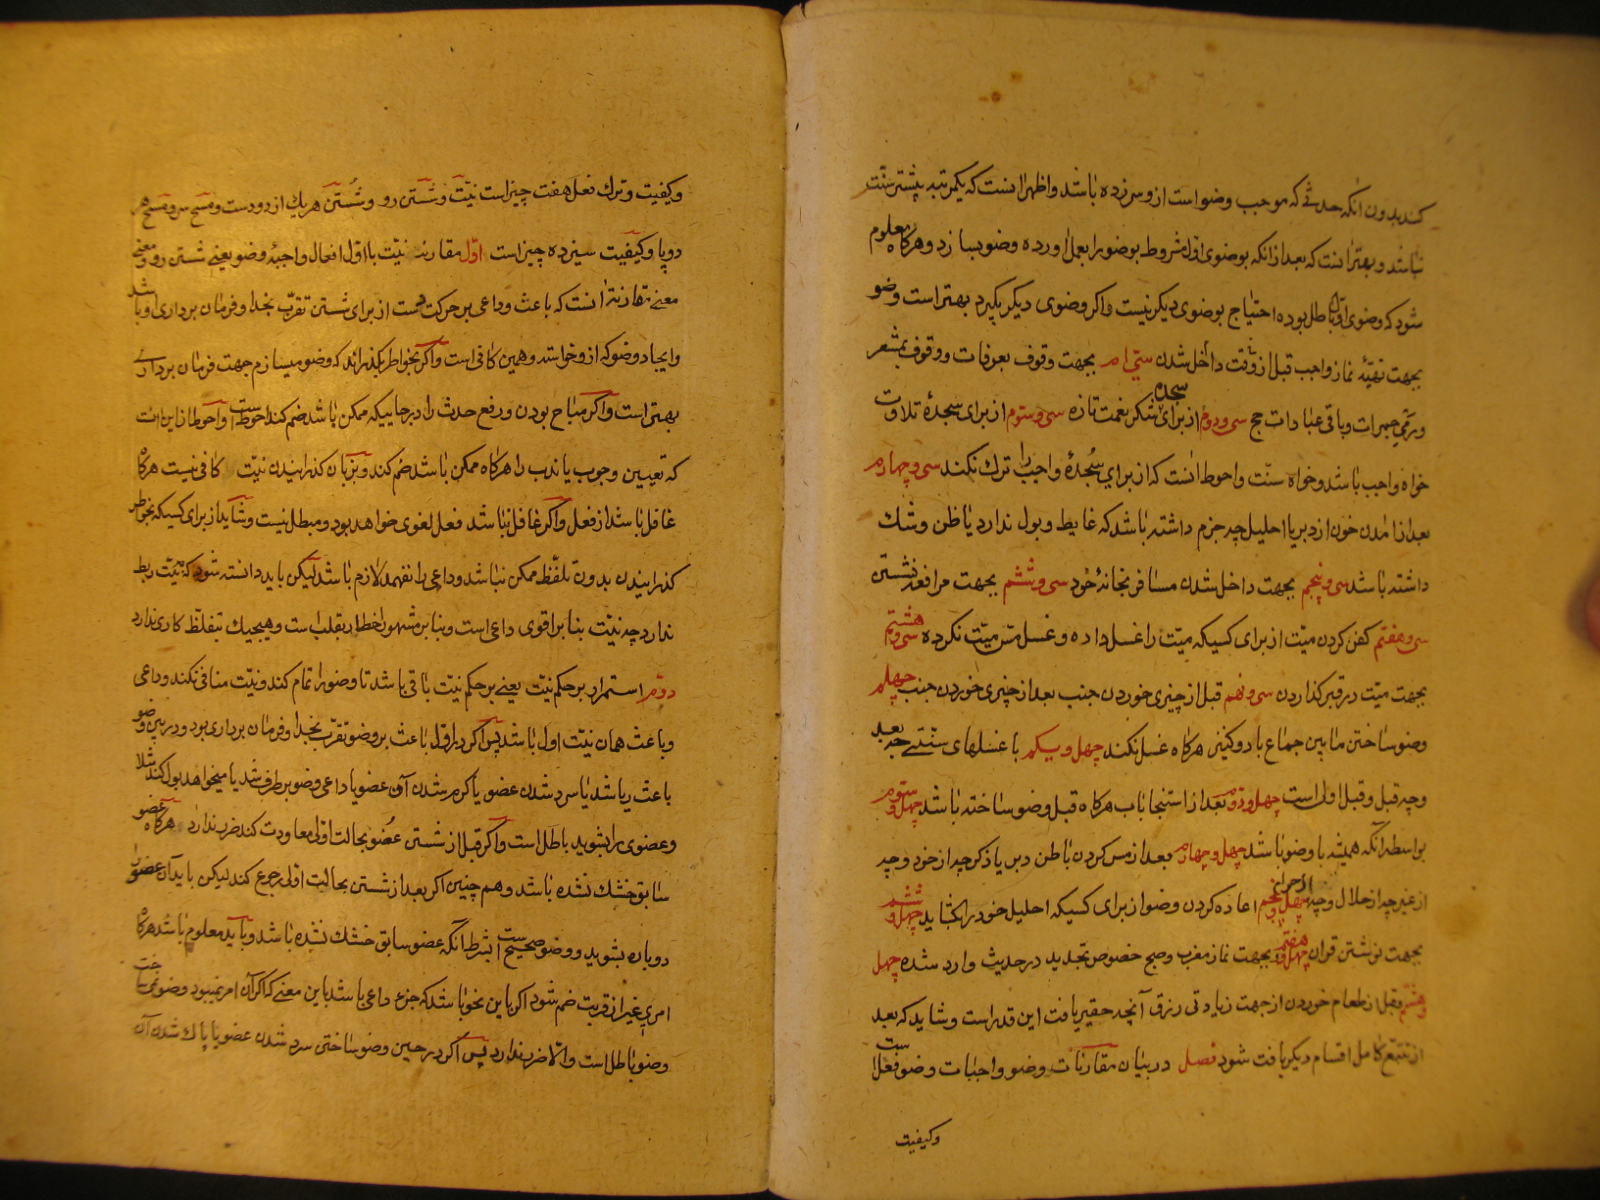 کند بدون آنکه حدثی که موجب وضو است از او سر زده باشد و اظهر آنست که یکمرتبه پیشتر سنت
نباشد و بهتر آنست که بعد از آنکه بوضوی اول مشروط بوضو را بعمل آورده وضو بسازد و هرگاه معلوم
شود که وضوی اول باطل بوده احتیاج بوضوی دیگر نیست و اگر وضوی دیگر بگیرد بهتر است و وضو
بجهت تهیّهٔ نماز واجب قبل از وقت داخل شدن سی‌ام بجهت وقوف بعرفات و وقوف بمشعر
و رمی جمرات و باقی عبادات حج سی و دوم از برای سجدهٔ شکر نعمت تازه سی و سوم از برای سجدهٔ تلاوت
خواه واجب باشد و خواه سنّت و احوط آنست که از برای سُجدهٔ واجب را ترک نکند سی و چهارم
بعد از آمدن خون از دبر یا احلیل چه جزم داشته باشد که غایط و بول ندارد یا ظن و شک
داشته باشد سی و پنجم بجهت داخل شدن مسافر بخانهٔ خود سی و ششم بجهت مرافعه نشستن
سی و هفتم کفن کردن میّت از برای کسیکه میّت را غسل داده و غسل مسّ میّت نکرده سی و هشتم
بجهت میّت در قبر گذاردن سی و نهم قبل از چیزی خوردن جنب بعد از چیزی خوردن جنب چهلم
وضو ساختن مابین جماع با دو کنیز هرگاه غسل نکند چهل و یکم با غسلهای سنّتی چه بعد
و چه قبل و قبل اولی است چهل و دوم بعد از استنجا بآب هرگاه قبل وضو ساخته باشد چهل و سوم
بواسطه آنکه همیشه با وضو باشد چهل و چهارم بعد از مس کردن باطن دبر یا ذکر چه از خود و چه
از غیر چه از حلال و چه از حرام چهل و پنجم اعاده کردن وضو از برای کسیکه احلیل خود را بگشاید چهل و ششم
بجهت نوشتن قرآن چهل و هفتم بجهت نماز مغرب و صبح خصوص تجدید در حدیث وارد شده چهل
و هشتم قبل از طعام خوردن از جهت زیادتی رزق آنچه حقیر یافت این قدر است و شاید که بعد
از تتبّع کامل اقسام دیگر یافت شود فصل در بیان مقارنات وضو واجبات وضو فعل است
وکیفیت
وکیفیت و ترک فعل هفت چیز است نیّت و شستن رو و شُستن هر یک از دو دست و مسح سر و مسح هر
دو پا و کیفیت سیزده چیز است اوّل مقارنه نیّت با اوّل افعال واجبهٔ وضو یعنی شستن رو و معنی
معنی مقارنه آنست که باعث و داعی بر حرکت دست از برای شستن تقرّب بخدا و فرمان برداری او باشد
و ایجاد وضو که از او خواسته و همین کافی است و اگر بخواطر بگذراند که وضو میسازم جهت فرمان برداری
بهتر است و اگر مباح بودن و رفع حدث را در جاییکه ممکن باشد ضم کند احوط است و احوط از این آنست
که تعیین وجوب یا ندب را هرگاه ممکن باشد ضم کند و بزبان گذرانیدن نیّت کافی نیست هرگاه
غافل باشد از فعل و اگر غافل نباشد فعل لغوی خواهد بود و مبطل نیست و شاید از برای کسیکه بخواطر
گذرانیدن بدون تلفّظ ممکن نباشد و داعی را نفهمد لازم باشد لیکن باید دانسته شود که نیّت ربط
ندارد چه نیّت بنابر اقوی داعی است و بنابر مشهور اخطار بقلب است و هیچیک بتلفّظ کاری ندارد
دوّم استمرار بر حکم نیّت یعنی بر حکم نیّت باقی باشد تا وضو را تمام کند و نیّت منافی نکند و داعی
و باعث همان نیّت اول باشد پس اگر در اوّل باعث بر وضو تقرّب بخدا و فرمان برداری بود و در بین وضو
باعث ریا شد یا سرد شدن عضو یا گرم شدن آن عضو یا داعی وضو برطرف شد یا میخواهد بول کند مثلا
و عضوی را بشوید باطل است و اگر قبل از شستن عُضو بحالت اوّلی معاودت کند ضرر ندارد هرگاه عضو
سابق خشک نشده باشد و هم چنین اگر بعد از شستن بحالت اوّلی رجوع کند لیکن باید آن عضو را
دوباره بشوید و وضو صحیح است بشرط آنکه عضو سابق خشک نشده باشد و باید معلوم باشد هرگاه
امری غیر از قربت ضم شود اگر باین نحو باشد که جزء داعی باشد باین معنی که اگر آن امر نمیبود وضو نمیساخت
وضو باطل است و الا ضرر ندارد پس اگر در حین وضو ساختن سرد شدن عضو یا پاک شدن آن